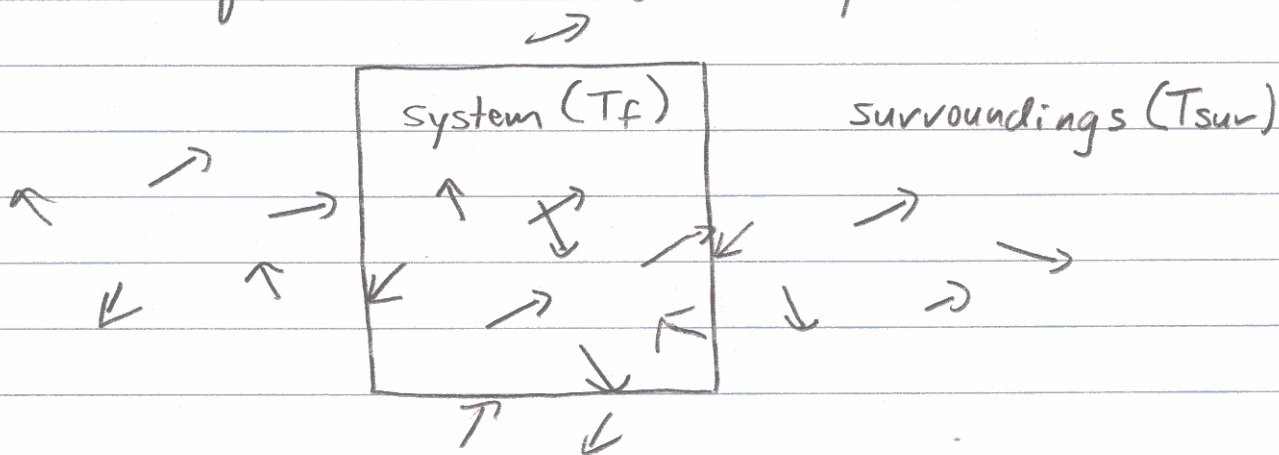 system (Tf)
surroundings (Tsur)